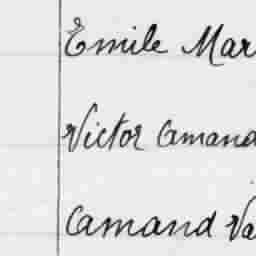 Emile Mar
Victor Amand
Amand Va